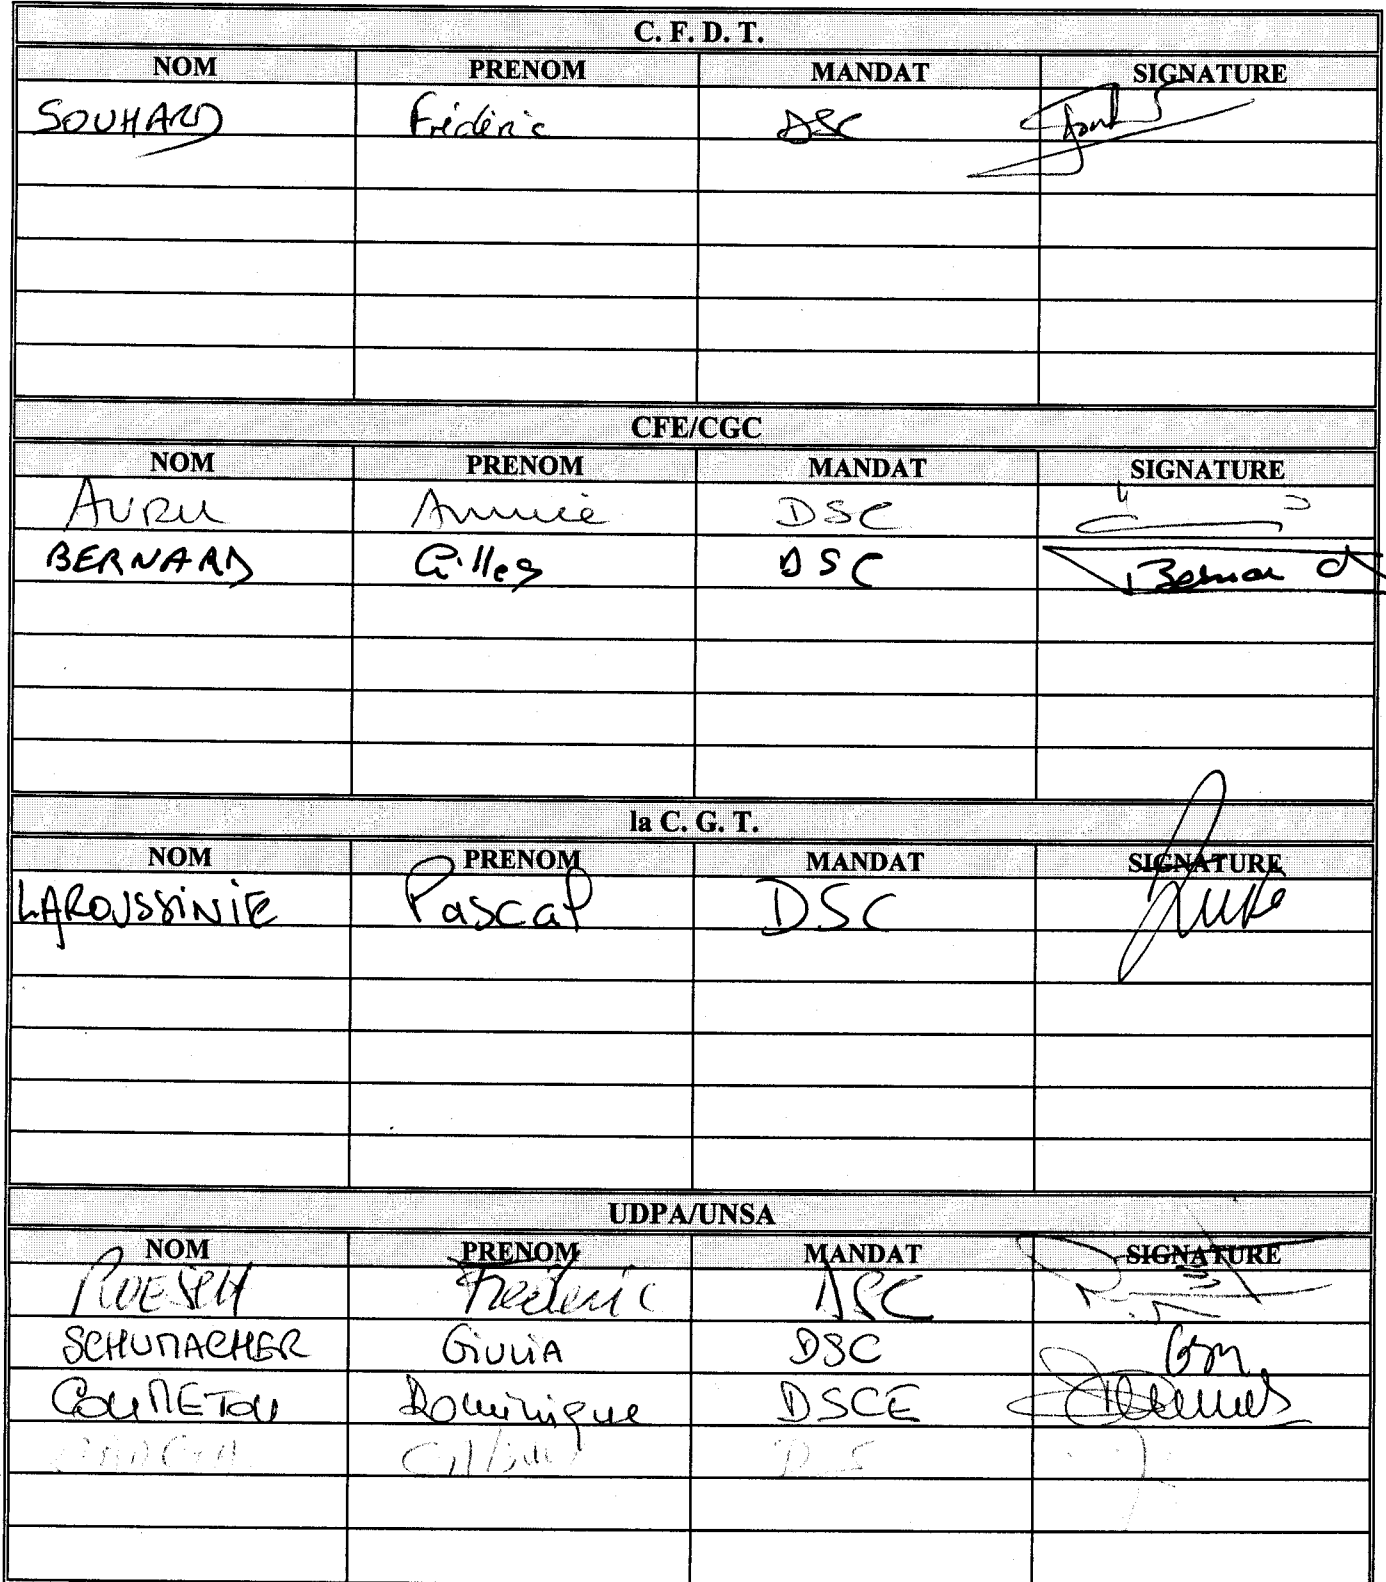 C. F. D. T.
NOM PRENOM MANDAT SIGNATURE
SOUHARD Frédéric DSC
CFE/CGC
NOM PRENOM MANDAT SIGNATURE
AVRIL Annie DSC
BERNARD Gilles DSC Bernard
la C. G. T.
NOM PRENOM MANDAT SIGNATURE
LAROUSSINIE Pascal DSC
UDPA/UNSA
NOM PRENOM MANDAT SIGNATURE
ROESCH Frédéric DSC
SCHUMACHER GIULIA DSC
Dominique DSCE